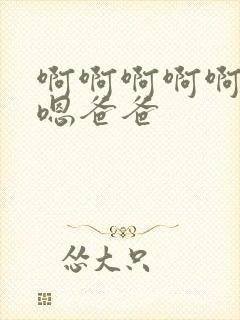 啊啊啊啊啊
嗯爸爸
怂大只